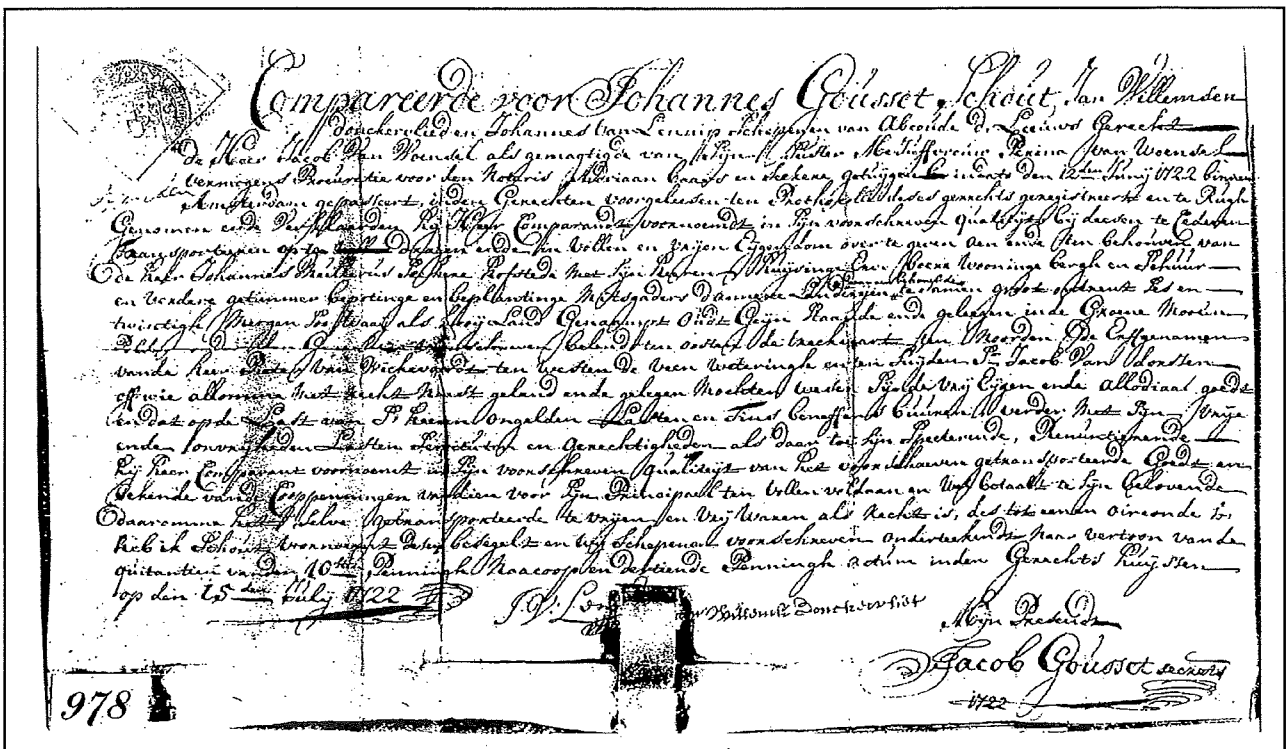 Compareerde voor Johannes Gousset, Schout, Jan Willemsen
Donckervliet en Johannes Van Lennip schepenen van Abcoude d. Leeuws Gerecht
de Heer Jacob Van Woensel als gemagtigde van Sijn Suster Mejufferouw Van Woensel
vermogens Procuratie voor den Notaris Adriaan Baars en seekere getuijgen in dato den 12den Junij 1722 binnen
Amsterdam gepasseert, inden Gerechten voorgeleesen ten Prothocolle deses gerechts geregistreert en te Rugh
Genomen ende Verklaarden hij Heer Comparandt voornoemdt in Sijn voorschreven qualityt bij deesen te Cederen
Transporteeren op te Dragen ende in vollen en vrijen Eijgendom over te geven aen ende ten behouven van
de Heer Johannes Hofstede Met Sijn Heeren Huijsinge Boere Wooninge bergh en Schuur
en Verdere getimmer bepotinge en beplantinge Mitsgaders d'annexe Landerijen te samen groot omtrent ses en
twintigh Mergen Soo Waij als Hooij Land Genaempt Oudt Geijn Staande ende gelegen inde Groene
belendt ten oosten de treckvaart ten Noorden De Erffgenamen
vande Heer Pieter Van ten Westen de Veen Weteringhe en ten Suijden Sr. Jacob Van
off wie allomme Met recht Naast geland ende gelegen Mochten wesen Sijnde Vrij Eijgen ende allodiaal goedt
en dat op de Last van 's Heeren Ongelden Lasten en Tins beneffens buuren verder Met Sijn Vrije
ende onvrijheden Lasten Servituten en Gerechtigheden als daar toe Sijn Specterende, Renuntieerende
hij Heer Comparant voornoemt in Sijn voorschreven qualiteijt van het voorschreven getransporteerde Goedt en
bekende vande Cooppenningen van dien voor Sijn Principael ten vollen voldaan en wel betaalt te Sijn belovende
daaromme het Selve getransporteerde te vrijen en Vrij Waren als recht is, des t'oirconde is
heb ik Schout voornoemt desen besegelt en wij Schepenen voorschreven onderteekendt Naar vertoon vande
quitantien vanden 40ste Penningh Naacoop en dertiende Penningh actum inden Gerechts Huijssen
op den 15den Julij 1722
J. V: Len Willemsz Donckervliet
Mijn Presendt
Jacob Gousset secrets
1722
978